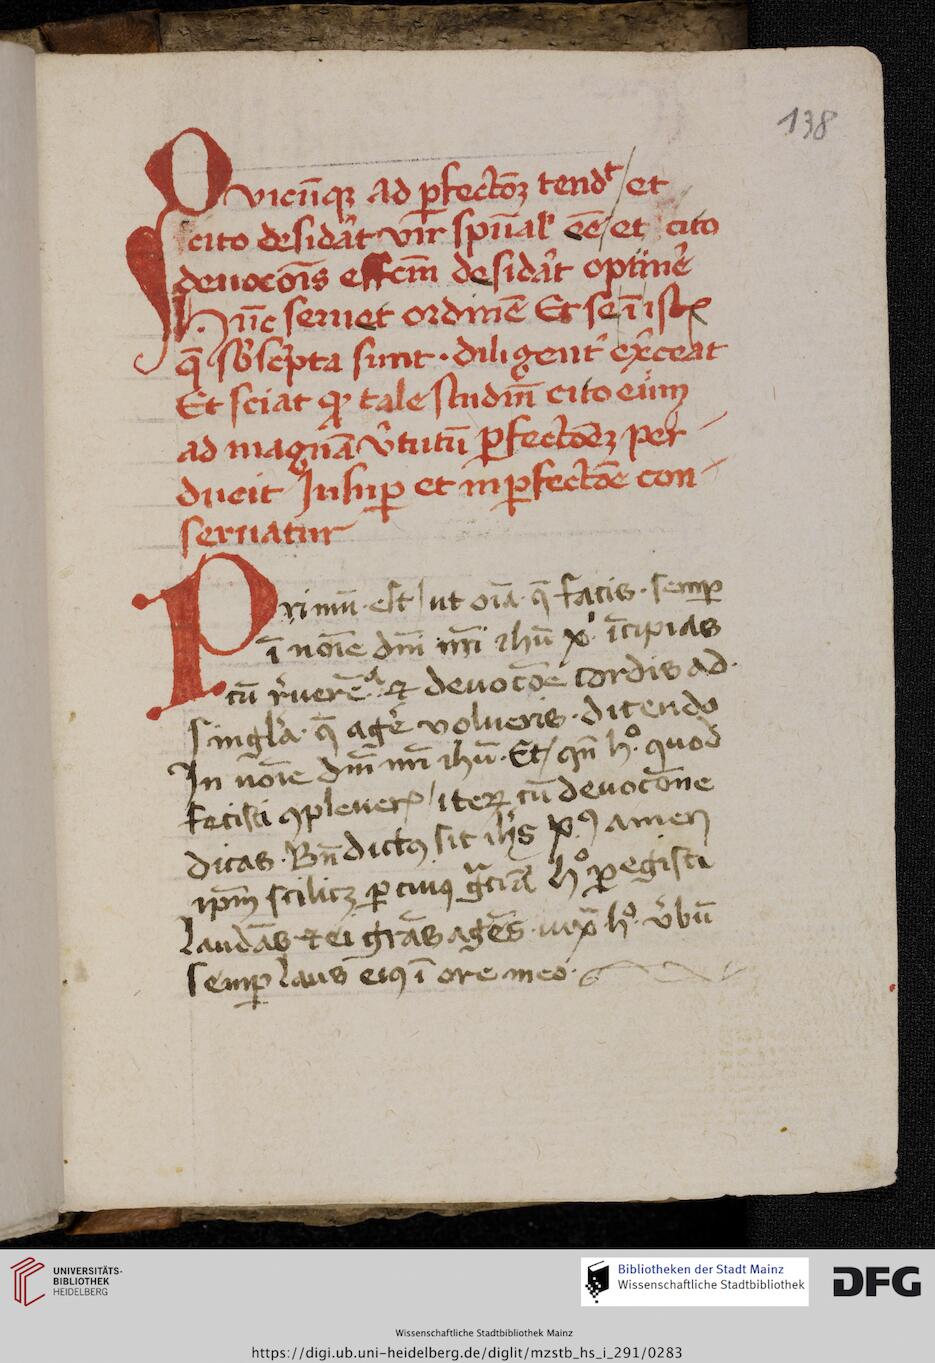 138
Quicūqꝫ ad ꝑfectōꝫ tendᵗ / et
cito desidãt vir̄ spūaľ eē / et cito
deuocōis effcm̄ desidãt optinē
Hūc seruet ordinē Et se ī istꝭ
q̄ sb̄scpta sunt · diligentˀ ex̄ceat
Et sciat ꝙ tale studiū cito eum
ad magnā v̓tutū ꝑfectōeꝫ per
ducit Insuꝑ et in ꝑfectōe con
seruatur
Primū · est / ut oīa · q̄ facis · semꝑ
ī noīe dn̄i nr̄i ihū xp̄ı īcipias
cū r̓uerē̄ᵃ · et deuocōe cordis ad ·
singĺa · q̄ agē volueris · dicendo
In noīe dn̄i nr̄i ihū · Et / qn̄ h° · quod
fecisti ꝯpleuerꝭ / iteꝝ cū deuocōne
dicas · Bn̄dictꝰ sit ihs̄ xp̄ꝰ amen
ipm̄ scilicꝫ ꝑ cuiꝰ gr̄ciā h° ꝑegisti
laudās · et ei grās agēs · iuxᵃ h° · v̓bū
semꝑ laus eiꝰ ī ore meo ·
UNIVERSITÄTS-
BIBLIOTHEK
HEIDELBERG
Bibliotheken der Stadt Mainz
Wissenschaftliche Stadtbibliothek
DFG
Wissenschaftliche Stadtbibliothek Mainz
https://digi.ub.uni-heidelberg.de/diglit/mzstb_hs_i_291/0283